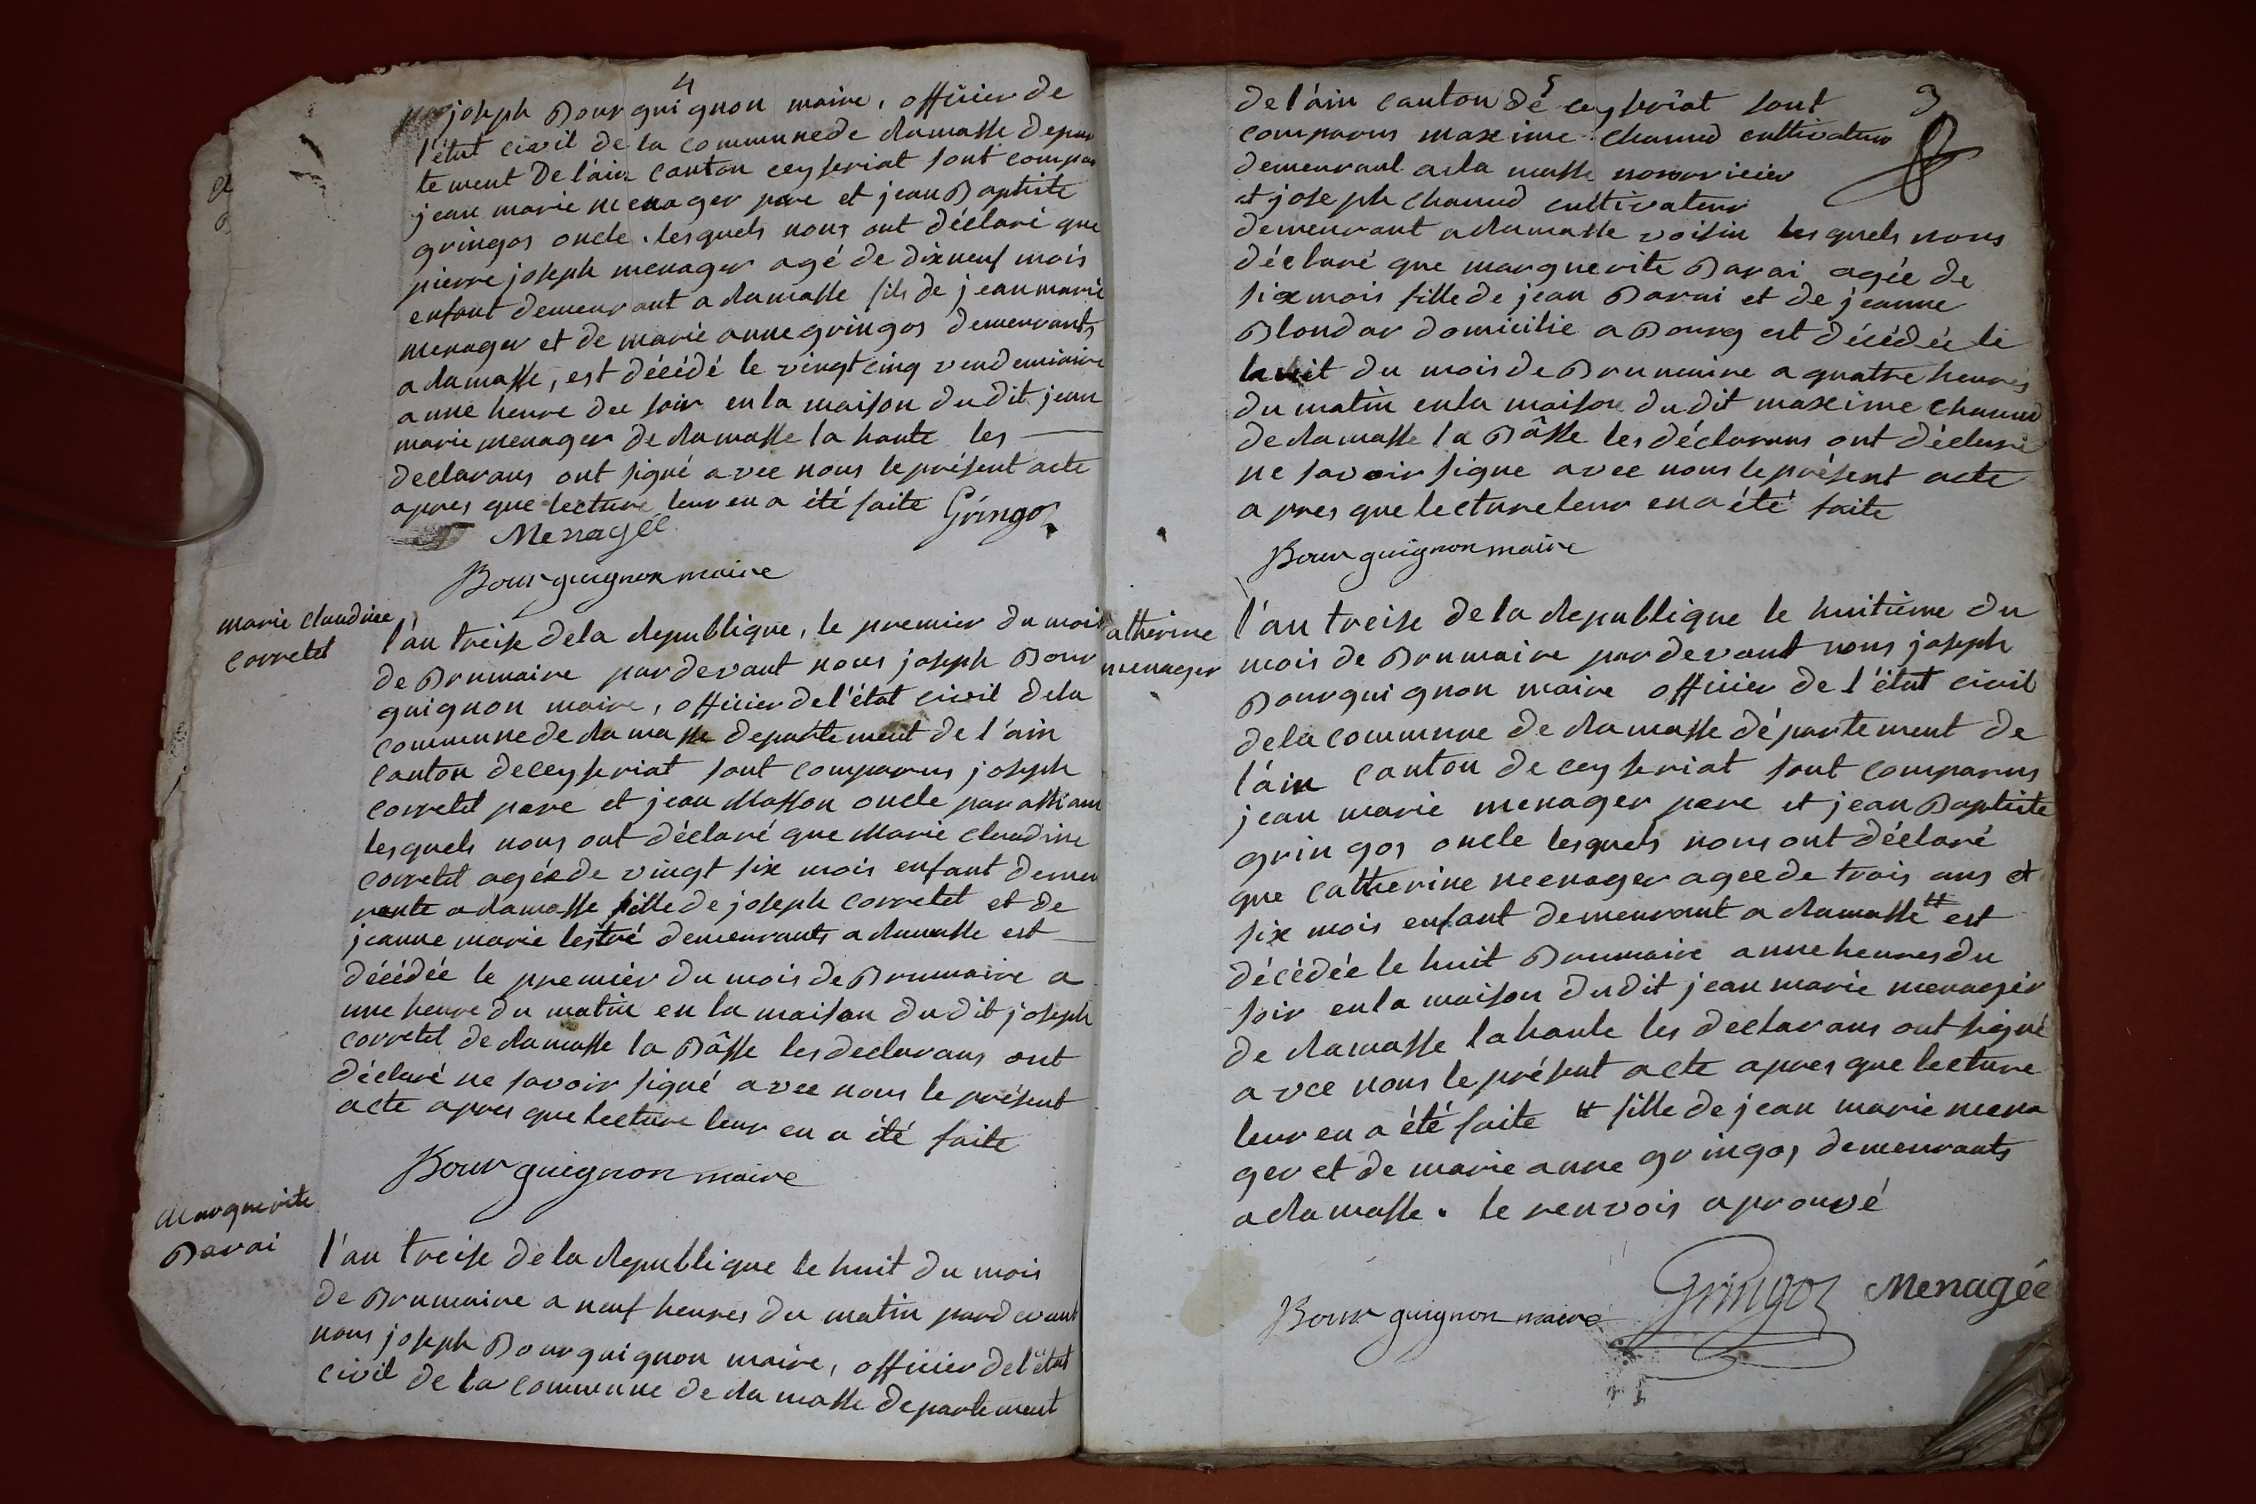 4
joseph Bourguignon maire, officier de
l'état civil de la commune de dramasse depar
tement de l'ain canton ceyseriat sont compa
jean marie menager pere et jean Baptiste
gringos oncle. lesquels nous ont déclaré que
pierre joseph menager agé de dix neuf mois
enfant demeurant a dramasse fils de jean marie
menager et de marie anne gringos demeurants
a dramasse, est décédé le vingt cinq vendemiaire
a une heure du soir en la maison du dit jean
marie menager de dramasse la haute les
declarans ont signé avec nous le présent acte
apres que lecture leur en a été faite Gringoz
Menagée
Bourguignon maire
marie claudine
corretel
l'an treise de la republique, le premier du mois
de Brumaire pardevant nous joseph Bour
guignon maire, officier de l'état civil de la
commune de dramasse departement de l'ain
canton de ceyseriat sont comparus joseph
corretel pere et jean Masson oncle par alliance
lesquels nous ont déclaré que Marie claudine
corretel agée de vingt six mois enfant demeu
rante a dramasse fille de joseph corretel et de
jeanne marie lestré demeurants a dramasse est
décédée le premier du mois de Brumaire a
une heure du matin en la maison du dit joseph
corretel de dramasse la Bâsse les declarans ont
déclaré ne savoir signé avec nous le présent
acte apres que lecture leur en a été faite
Bourguignon maire
Marguerite
Barai
l'an treise de la republique le huit du mois
de Brumaire a neuf heures du matin pardevant
nous joseph Bourguignon maire, officier de l'état
civil de la commune de dramasse departement
5
3
de l'ain canton de ceyseriat sont
comparus maxime chanud cultivateur
demeurant a dramasse nourricier
et joseph chanud cultivateur
demeurant a dramasse voisin lesquels nous
déclaré que marguerite Barai agée de
six mois fille de jean Barai et de jeanne
Blondar domicilié a Bourg est décédée le
huit du mois de Brumaire a quatre heures
du matin en la maison du dit maxime chanud
de dramasse la Bâsse les déclarans ont déclaré
ne savoir signe avec nous le présent acte
apres que lecture leur en a été faite
Bourguignon maire
atherine
menager
l'an treise de la republique le huitième du
mois de Brumaire pardevant nous joseph
Bourguignon maire officier de l'état civil
de la commune de dramasse département de
l'ain canton de ceyseriat sont comparus
jean marie menager pere et jean Baptiste
gringos oncle lesquels nous ont déclaré
que catherine menager agee de trois ans et
six mois enfant demeurant a dramasse # est
décédée le huit Brumaire a une heures du
soir en la maison du dit jean marie menager
de dramasse la haute les declarans ont signé
avec nous le présent acte apres que lecture
leur en a été faite # fille de jean marie mena
ger et de marie anne gringos demeurants
a dramasse. le renvois aprouvé
Gringoz Menagée
Bourguignon maire